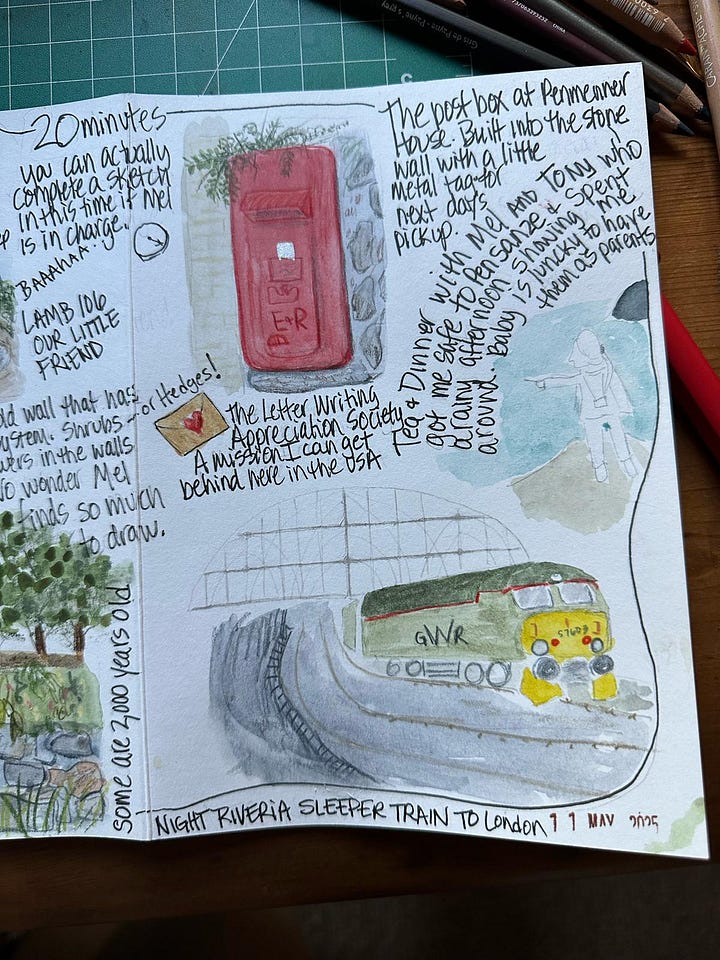 20 minutes
you can actually
complete a sketch
in this time if Mel
is in charge.
BAAAHAA.
LAMB 106
OUR LITTLE
FRIEND
old wall that has
system. Shrubs - or Hedges!
in the walls
No wonder Mel
finds so much
to draw.
some are 2,000 years old
The post box at Penmenner
House. Built into the stone
wall with a little
metal tag for
next days
pick up.
E R
The Letter Writing
Appreciation Society
A mission I can get
behind here in the USA
Tea & Dinner with Mel and Tony who
got me safe to Pensanze & spent
a rainy afternoon showing me
around. Baby is luncky to have
them as parents
GWR
57603
NIGHT RIVERIA SLEEPER TRAIN TO London 11 MAY 2025